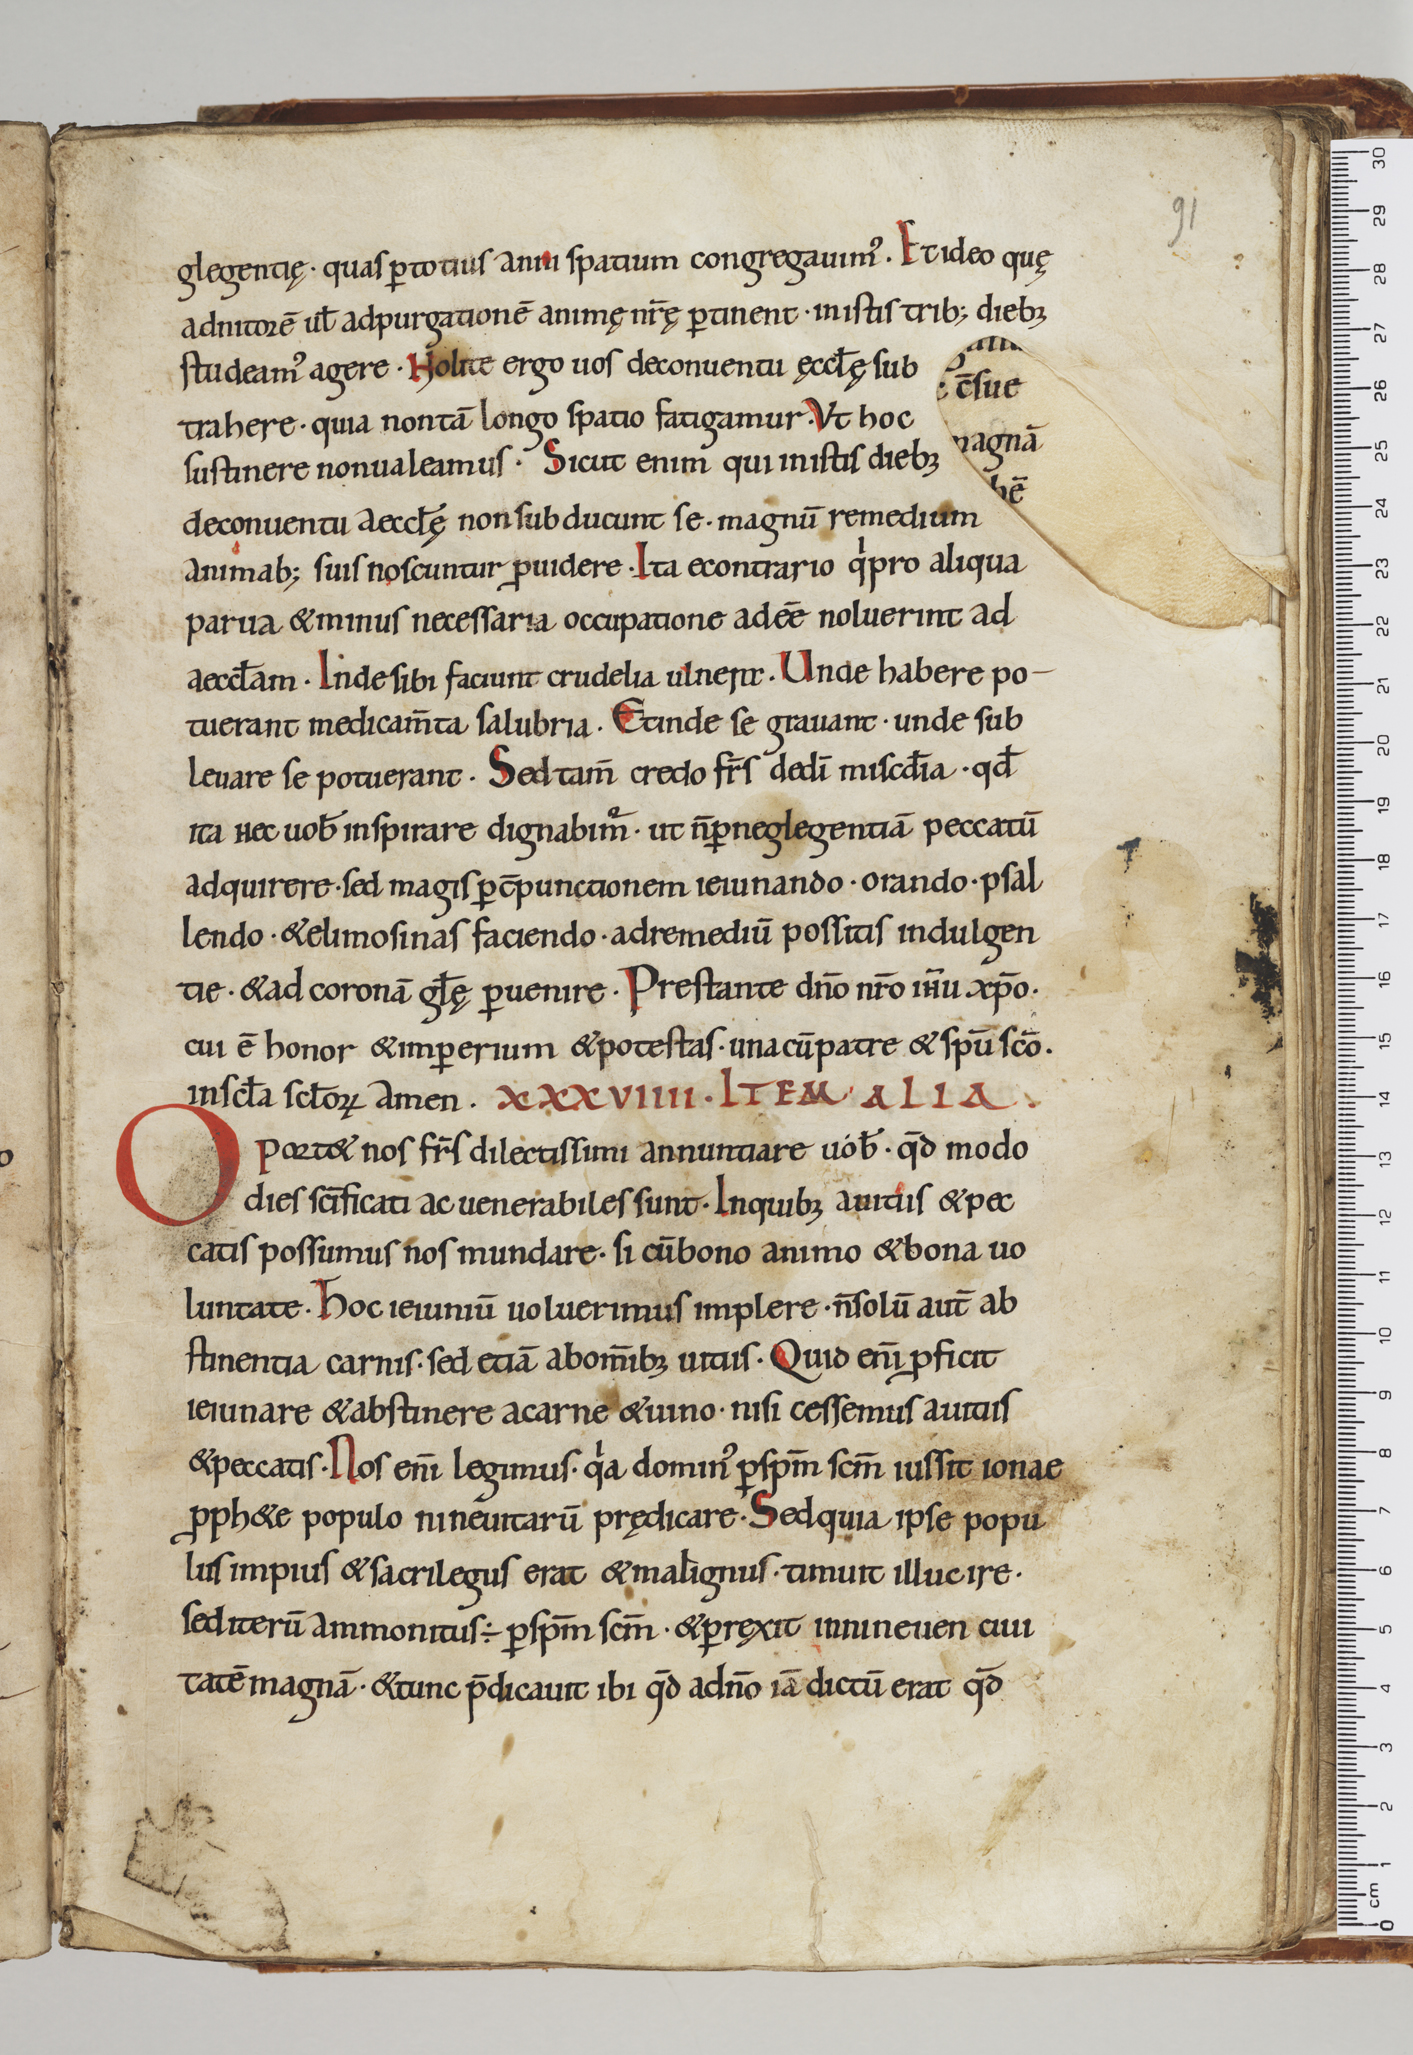 91
glegentię · quas ꝑtotius anni spatium congregauimꝰ. Et ideo quę
adnitorē uł adpurgationē animę nr̄ę ꝑtinent · inistis trib; dieb;
studeamꝰ agere · Nolite ergo uos deconuentu ęccłę sub
trahere · quia nontā longo spatio fatigamur · Vt hoc
c̄sue
sustinere nonualeamus · Sicut enim qui inistis dieb;
magnā
deconuentu aeccłę non subducunt se · magnū remedium
animab; suis noscuntur ꝓuidere · Ita econtrario qͥ pro aliqua
parua &minus necessaria occupatione adeē noluerint ad
aeccłam · Inde sibi faciunt crudelia ulnera. Unde habere po-
tuerant medicam̄ta salubria. Etinde se grauant · unde sub
leuare se potuerant · Sed tam̄ credo fr̄s dedī miscd̄ia · qđ
ita hec uob̄ inspirare dignabim̄ · ut n̄ ꝑneglegentiā peccatū
adquirere · sed magis ꝑc̄punctionem ieiunando · orando · psal
lendo · &elimosinas faciendo · adremediū possitis indulgen
tie · &ad coronā głę ꝑuenire · Prestante dn̄o nr̄o ih̄u xp̄o ·
cui ē honor &imꝑerium &potestas · unacū patre & spū scō.
inscła scłoꝝ amen. XXXVIIII · ITEM ALIA.
Oport& nos fr̄s dilectissimi annuntiare uob̄ · qd̄ modo
dies scīficati ac uenerabiles sunt · Inquib; auitiis &pec
catis possumus nos mundare · si cū bono animo &bona uo
luntate · Hoc ieiuniū uoluerimus implere · n̄ solū aut̄ ab
stinentia carnis · sed etiā abom̄ib; uitiis · Quid eni̅ ꝓficit
ieiunare &abstinere acarne &uino · nisi cessemus auitiis
&peccatis · Nos eni̅ legimus · qͥa dominꝰ ꝑsp̄m scm̄ iussit ionae
ꝓph&e populo nineuitarū prędicare · Sed quia ipse popu
lus impius &sacrilegus erat &malignus · timuit illuc ire ·
sed iterū ammonitus÷ ꝑsp̄m scm̄ · &ꝑręxit innineuen ciui
tatē magnā · &tunc p̄dicauit ibi qd̄ adn̄o iā dictū erat qd̄